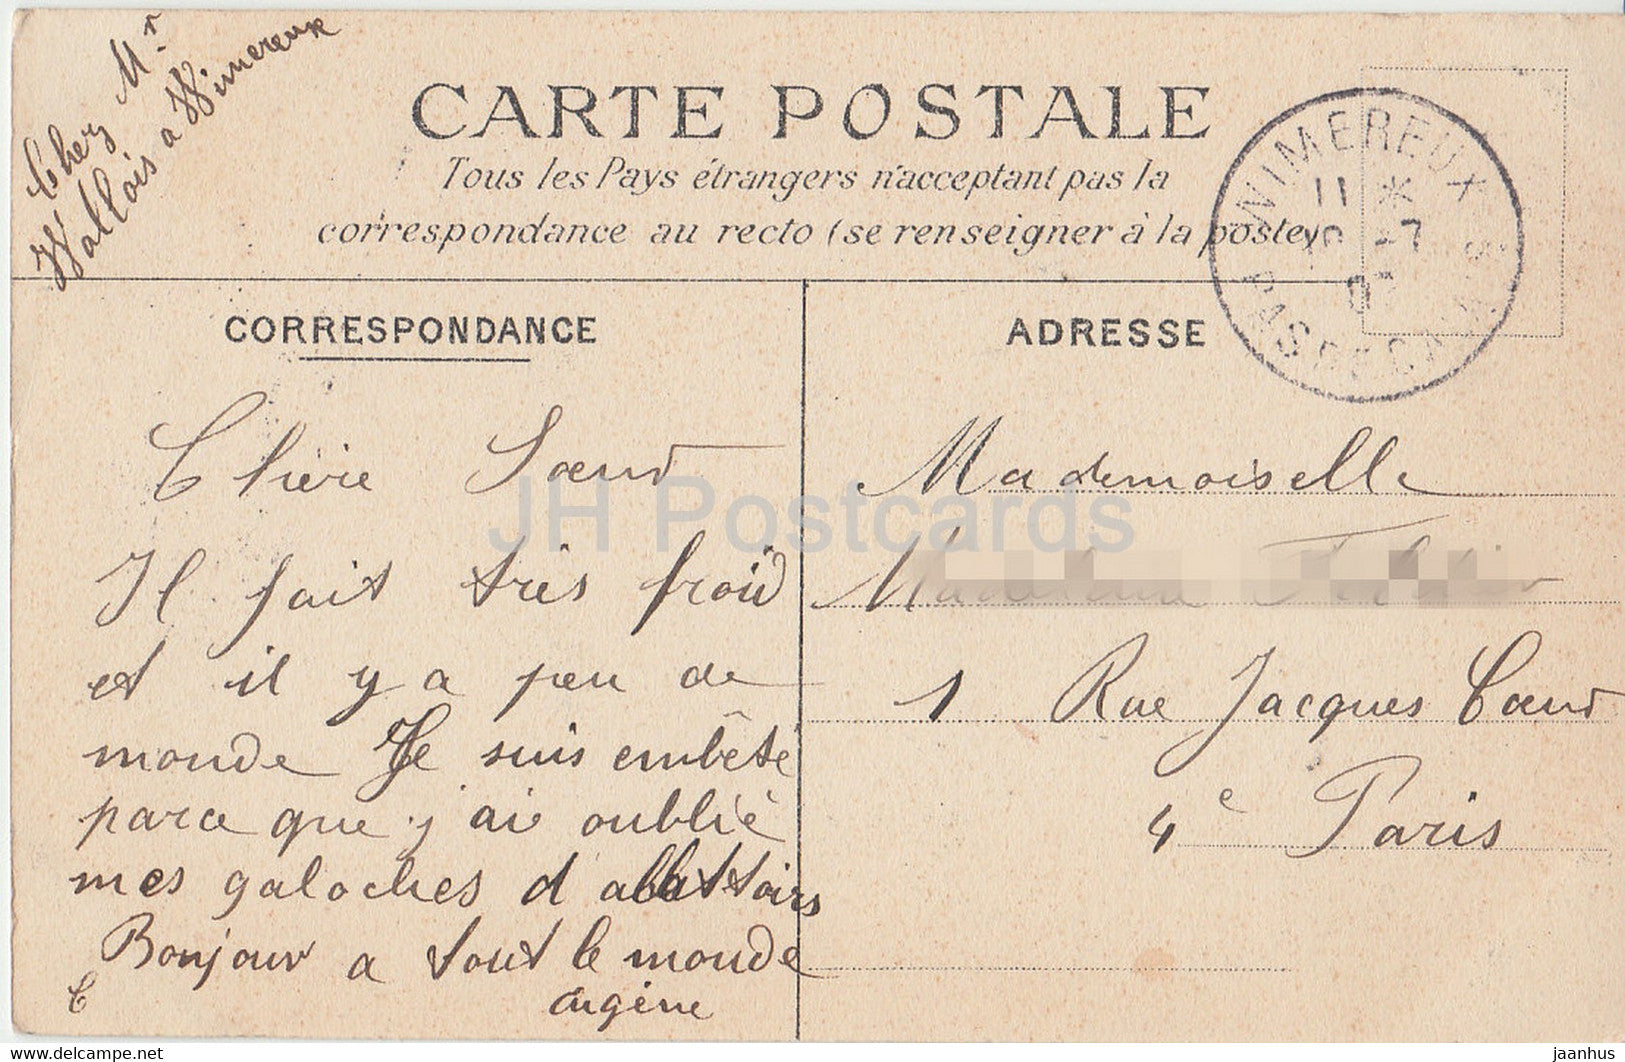 Chez Mr
Wallois a Wimereux
CARTE POSTALE
Tous les Pays étrangers n'acceptant pas la
correspondance au recto (se renseigner à la poste)
WIMEREUX
11 *
-7
PAS DE CALAIS
CORRESPONDANCE
ADRESSE
Chère Sœur
Il fait très froid
et il y a peu de
monde Je suis embêté
parce que j'ai oublié
mes galoches d abattoirs
Bonjour a tout le monde
Eugène
Mademoiselle
1 Rue Jacques Cœur
4e Paris
JH Postcards
https://www.jhpostcards.com
jaanhus